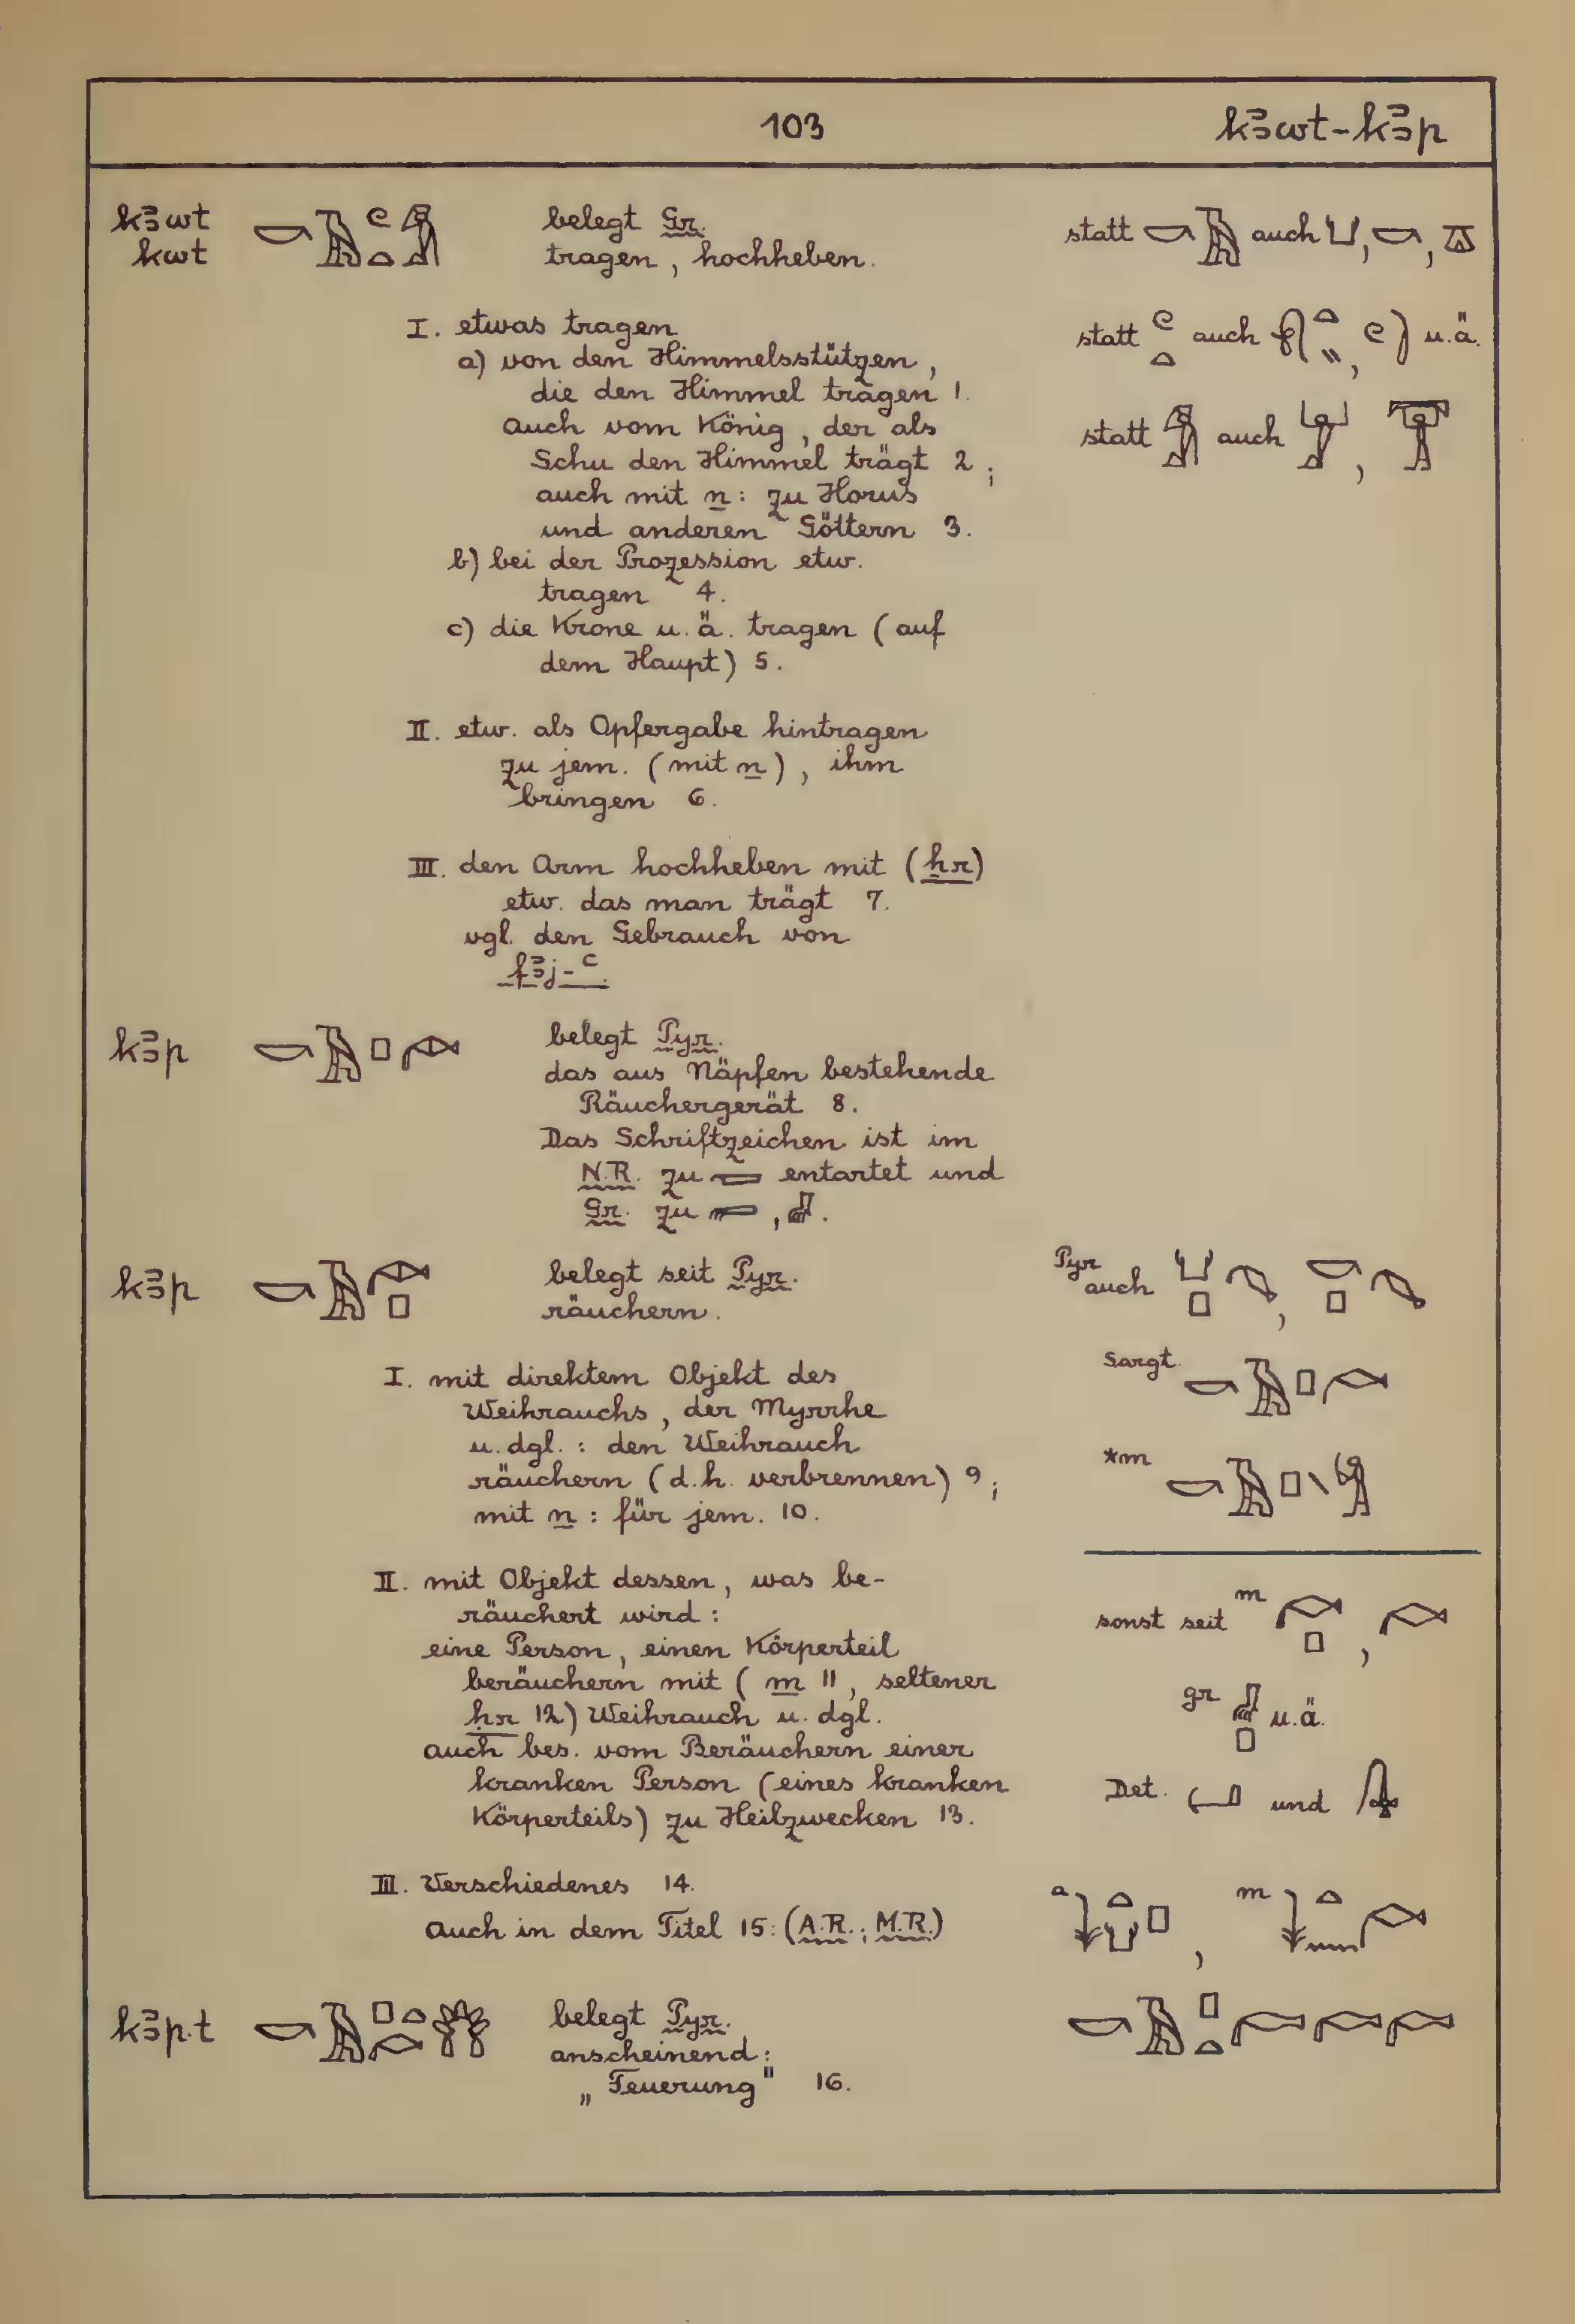 103
kꜣwt-kꜣp
kꜣwt
kwt
belegt Gr.
tragen, hochheben.
statt auch , ,
I. etwas tragen
a) von den Himmelsstützen,
die den Himmel tragen 1.
auch vom König, der als
Schu den Himmel trägt 2;
auch mit n: zu Horus
und anderen Göttern 3.
b) bei der Prozession etw.
tragen 4.
c) die Krone u. ä. tragen (auf
dem Haupt) 5.
statt auch u. ä.
statt auch ,
II. etw. als Opfergabe hintragen
zu jem. (mit n), ihm
bringen 6.
III. den Arm hochheben mit (ḥr)
etw. das man trägt 7.
vgl. den Gebrauch von
fꜣj-ꜥ.
kꜣp
belegt Pyr.
das aus Näpfen bestehende
Räuchergerät 8.
Das Schriftzeichen ist im
N.R. zu entartet und
Gr. zu , .
kꜣp
belegt seit Pyr.
räuchern.
Pyr
auch ,
Sargt.
*m
I. mit direktem Objekt des
Weihrauchs, der Myrrhe
u. dgl.: den Weihrauch
räuchern (d.h. verbrennen) 9;
mit n: für jem. 10.
II. mit Objekt dessen, was be-
räuchert wird:
eine Person, einen Körperteil
beräuchern mit (m 11, seltener
ḥr 12) Weihrauch u. dgl.
auch bes. vom Beräuchern einer
kranken Person (eines kranken
Körperteils) zu Heilzwecken 13.
sonst seit m ,
gr u. ä.
Det. und
III. Verschiedenes 14.
auch in dem Titel 15: (A.R.; M.R.)
a , m
kꜣp.t
belegt Pyr.
anscheinend:
„Feuerung" 16.